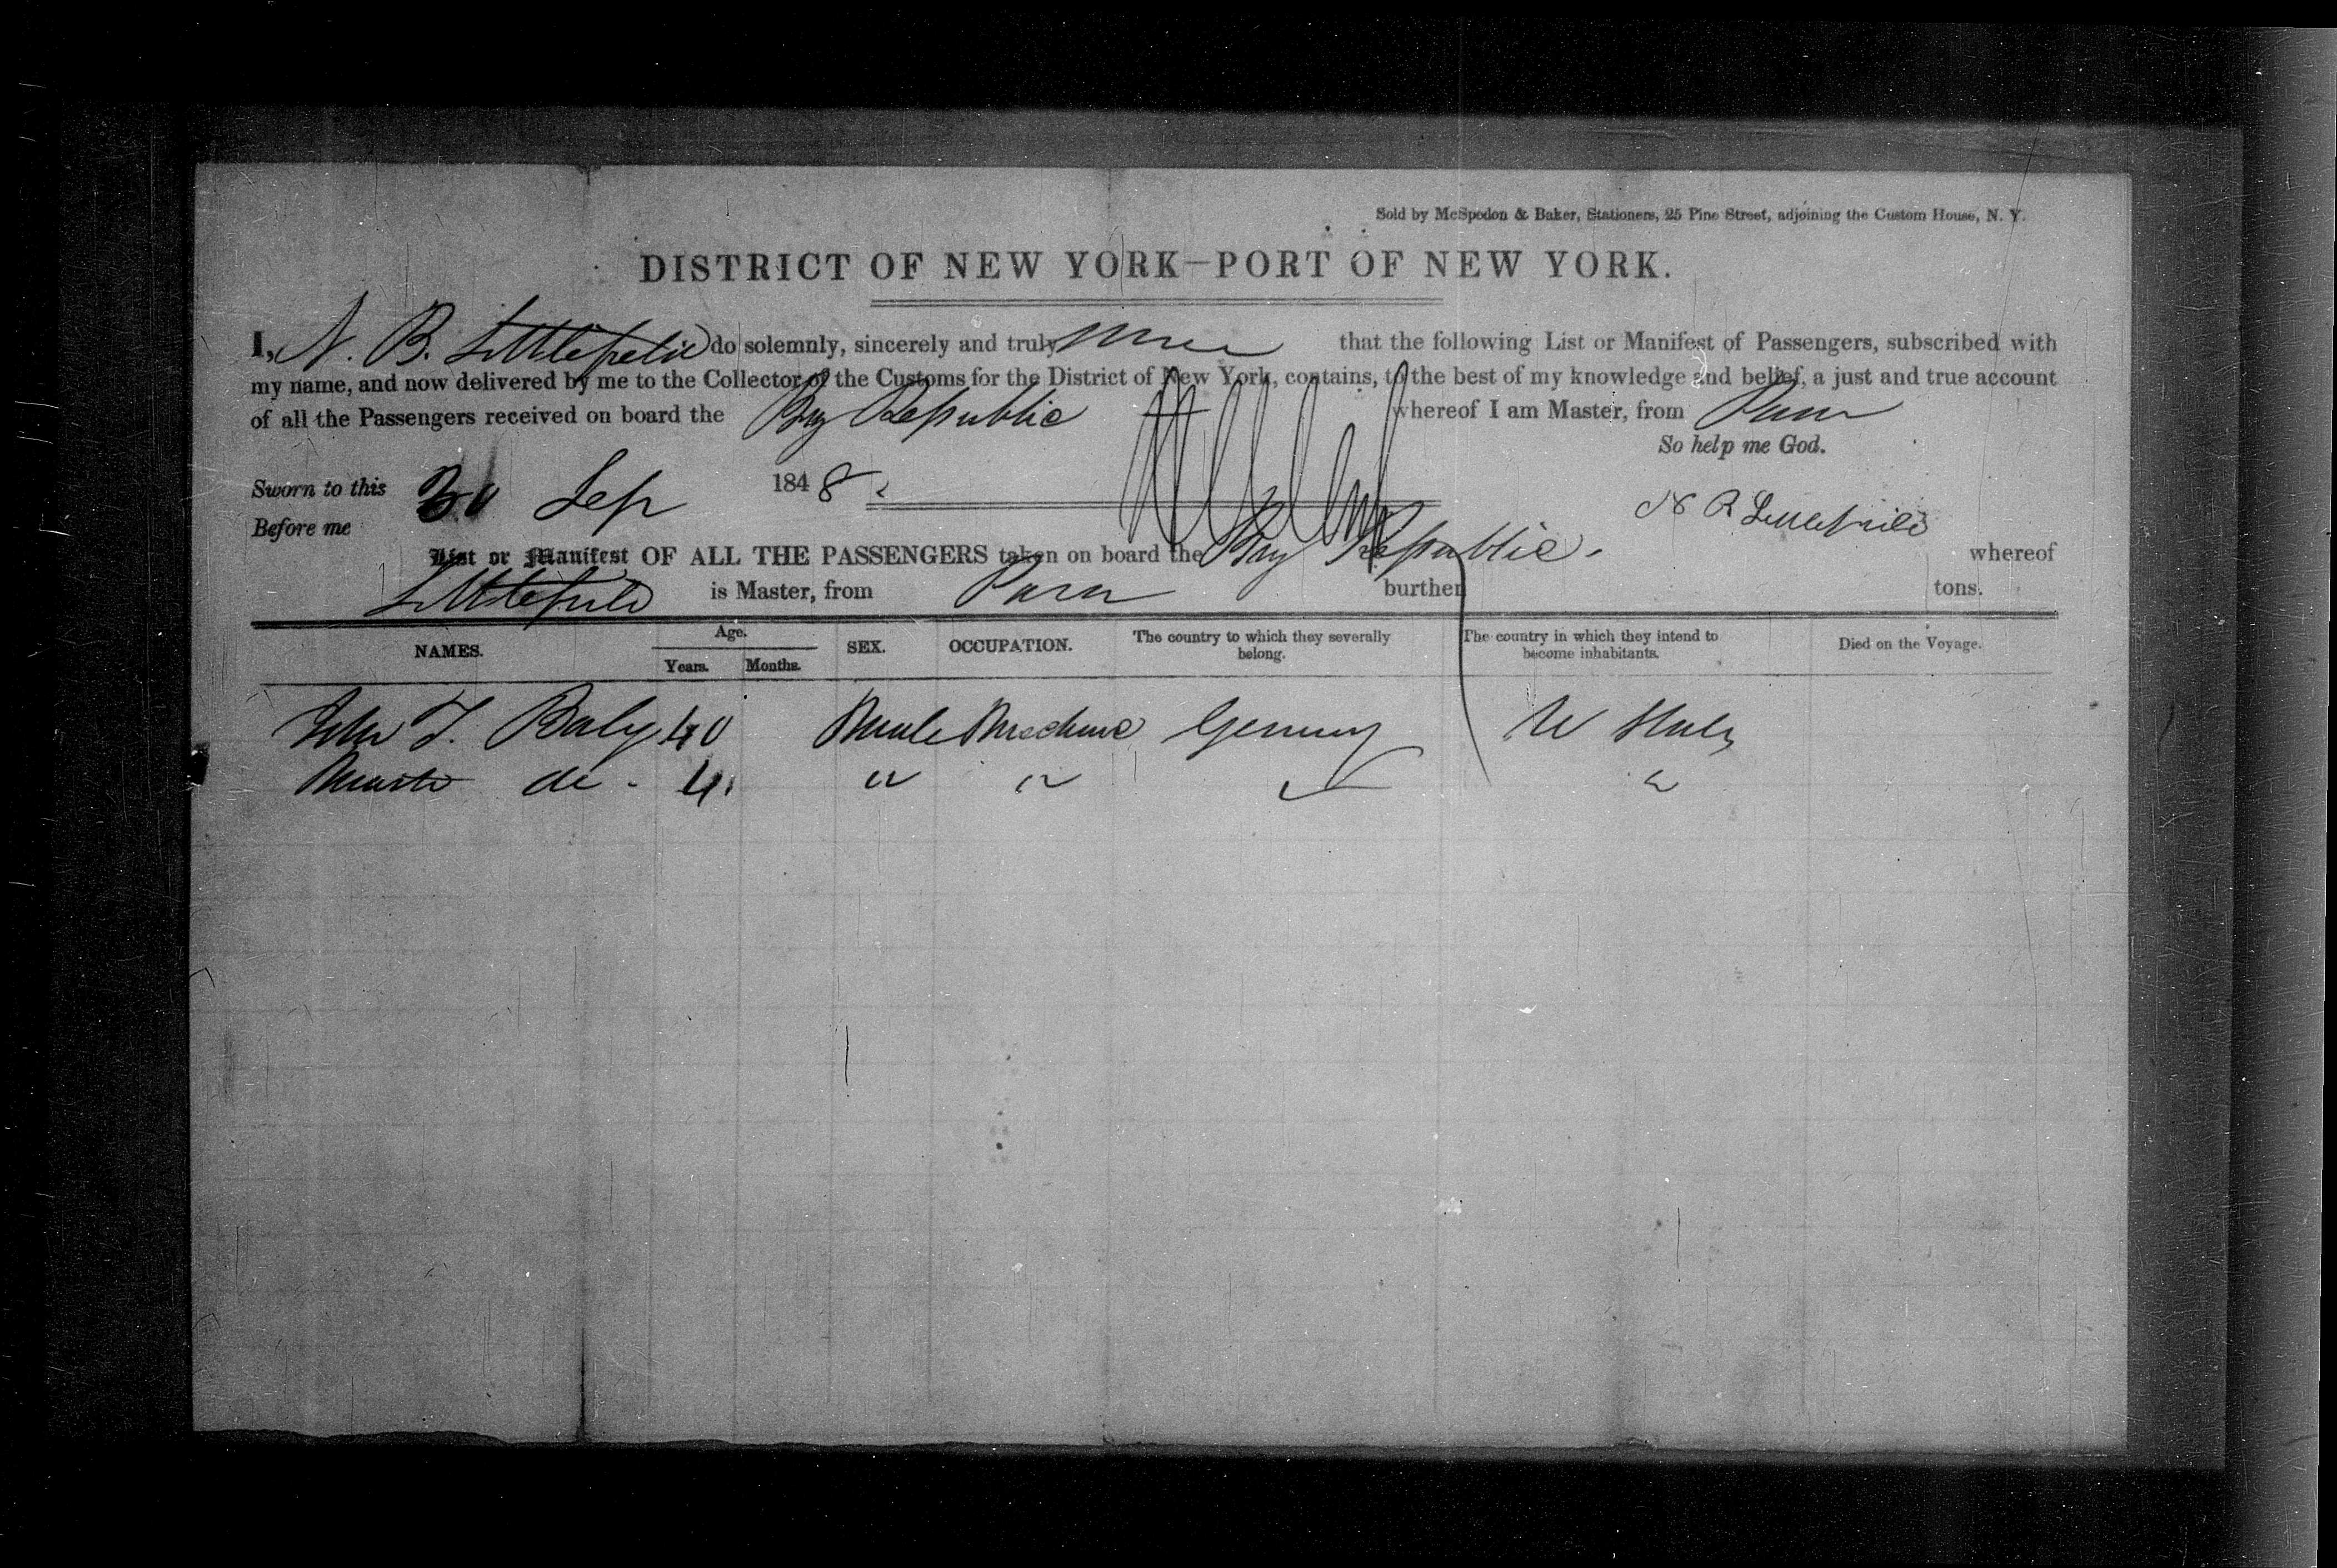 Sold by McSpedon & Baker, Stationers, 25 Pine Street, adjoining the Custom House, N. Y.
DISTRICT OF NEW YORK—PORT OF NEW YORK.
I, N. B. Littlefield do solemnly, sincerely and truly that the following List or Manifest of Passengers, subscribed with
my name, and now delivered by me to the Collector of the Customs for the District of New York, contains, to the best of my knowledge and belief, a just and true account
of all the Passengers received on board the Brig Republic whereof I am Master, from Para
So help me God.
Sworn to this 30 Sep 1848
N B Littlefield
Before me
List or Manifest OF ALL THE PASSENGERS taken on board the Brig Republic. whereof
Littlefield is Master, from Para burthen tons.
NAMES. Age. Years. Months. SEX. OCCUPATION. The country to which they severally belong. The country in which they intend to become inhabitants. Died on the Voyage.
John T. 40 Male Germany U States
do - 4 " " "